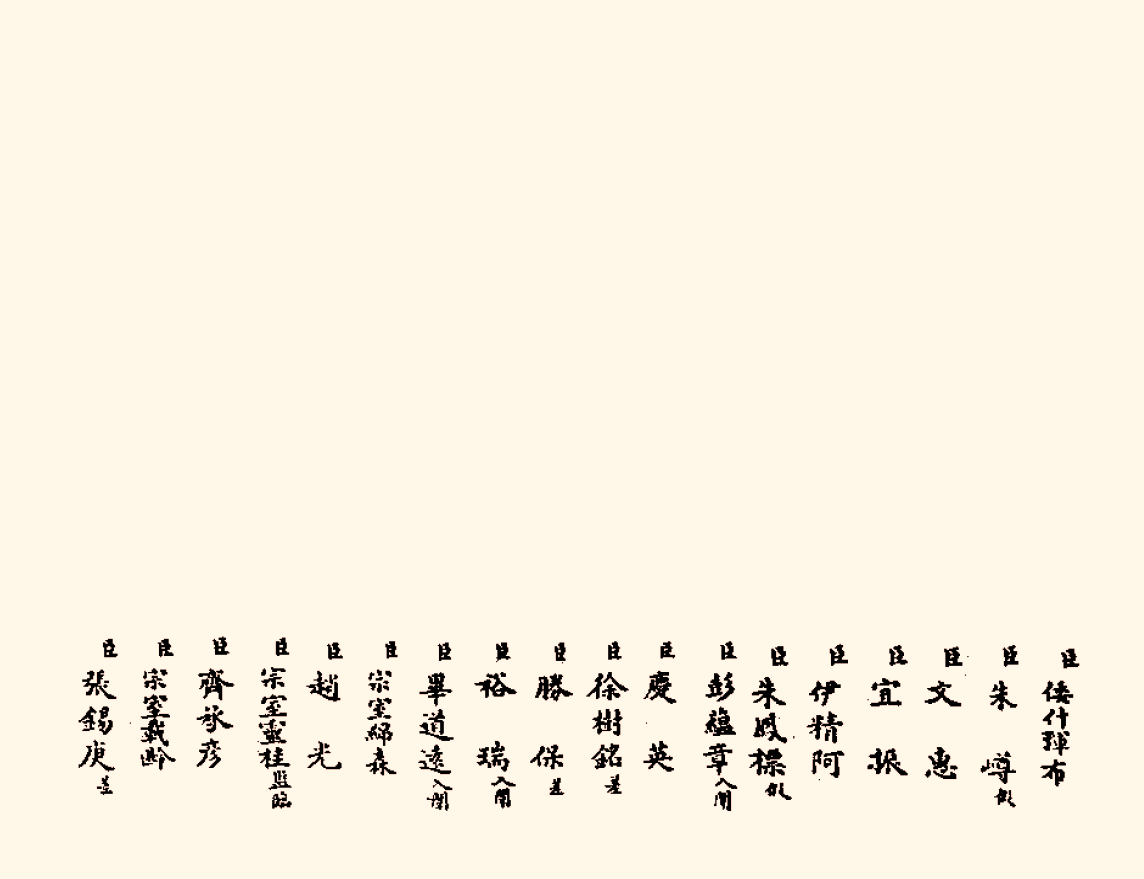 臣倭什琿布
臣朱嶟假
臣文惠
臣宜振
臣伊精阿
臣朱鳳標假
臣彭蘊章入闈
臣慶英
臣徐樹銘差
臣勝保差
臣裕瑞入闈
臣畢道遠入闈
臣宗室綿森
臣趙光
臣宗室靈桂監臨
臣齊承彦
臣宗室載齡
臣張錫庚差